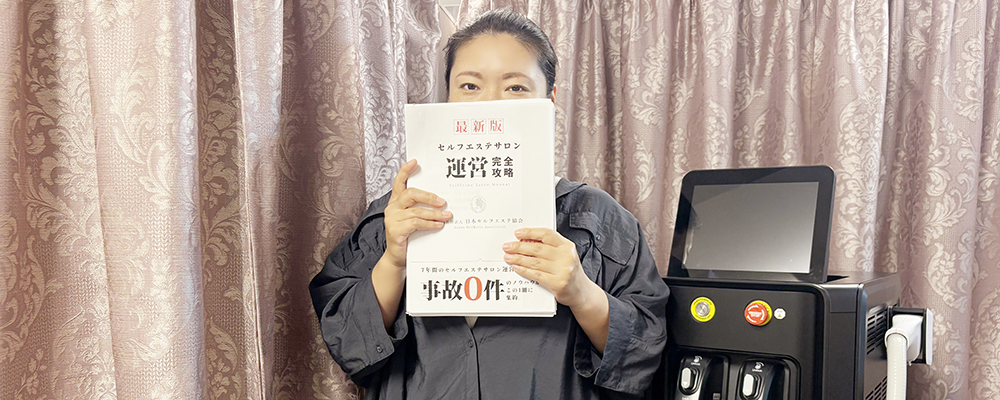 最新版
セルフエステサロン
運営 完全攻略
日本セルフエステ協会
7年間のセルフエステサロン運
事故0件 のノウハウを この1冊に 集約